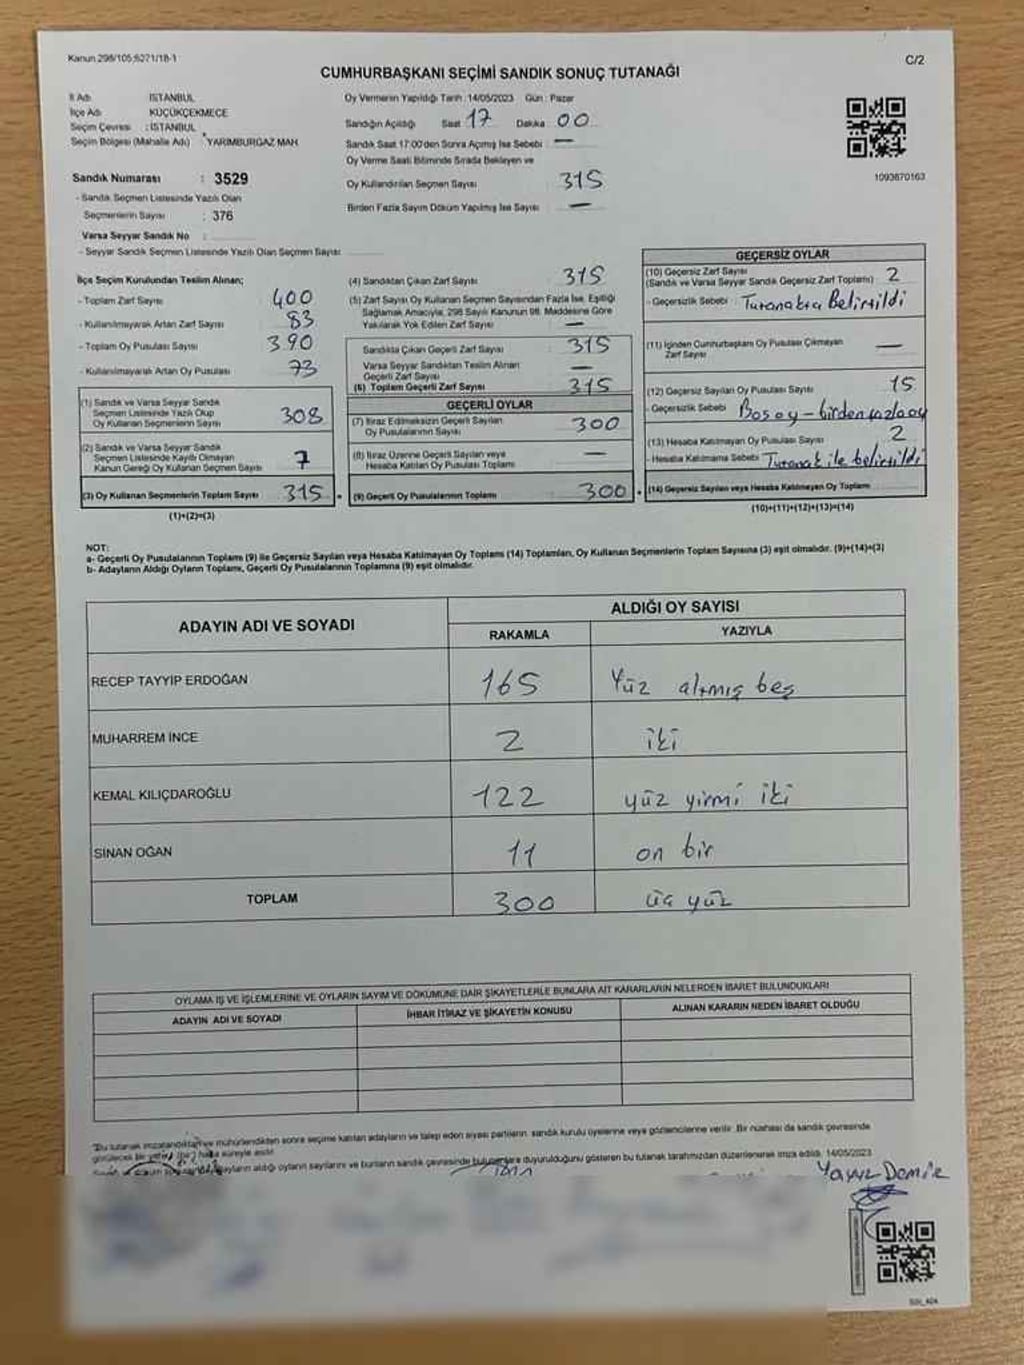 Kanun 298/105;6271/18-1
C/2
CUMHURBAŞKANI SEÇİMİ SANDIK SONUÇ TUTANAĞI
İl Adı İSTANBUL
İlçe Adı KÜÇÜKÇEKMECE
Seçim Çevresi : İSTANBUL
Seçim Bölgesi (Mahalle Adı) : YARIMBURGAZ MAH
Sandık Numarası : 3529
- Sandık Seçmen Listesinde Yazılı Olan
Seçmenlerin Sayısı : 376
Varsa Seyyar Sandık No :
- Seyyar Sandık Seçmen Listesinde Yazılı Olan Seçmen Sayısı
Oy Vermenin Yapıldığı Tarih :14/05/2023 Gün : Pazar
Sandığın Açıldığı Saat 17 Dakika 00
Sandık Saat 17:00'den Sonra Açılmış İse Sebebi : —
Oy Verme Saati Bitiminde Sırada Bekleyen ve
Oy Kullandırılan Seçmen Sayısı 315
Birden Fazla Sayım Döküm Yapılmış İse Sayısı —
1093870163
İlçe Seçim Kurulundan Teslim Alınan;
- Toplam Zarf Sayısı 400
- Kullanılmayarak Artan Zarf Sayısı 83
- Toplam Oy Pusulası Sayısı 390
- Kullanılmayarak Artan Oy Pusulası 73
(1) Sandık ve Varsa Seyyar Sandık
Seçmen Listesinde Yazılı Olup
Oy Kullanan Seçmenlerin Sayısı 308
(2) Sandık ve Varsa Seyyar Sandık
Seçmen Listesinde Kayıtlı Olmayan
Kanun Gereği Oy Kullanan Seçmen Sayısı 7
(3) Oy Kullanan Seçmenlerin Toplam Sayısı 315
(1)+(2)=(3)
(4) Sandıktan Çıkan Zarf Sayısı 315
(5) Zarf Sayısı Oy Kullanan Seçmen Sayısından Fazla İse, Eşitliği
Sağlamak Amacıyla, 298 Sayılı Kanunun 98. Maddesine Göre
Yakılarak Yok Edilen Zarf Sayısı —
Sandıkta Çıkan Geçerli Zarf Sayısı : 315
Varsa Seyyar Sandıktan Teslim Alınan
Geçerli Zarf Sayısı —
(6) Toplam Geçerli Zarf Sayısı 315
GEÇERLİ OYLAR
(7) İtiraz Edilmeksizin Geçerli Sayılan
Oy Pusulalarının Sayısı 300
(8) İtiraz Üzerine Geçerli Sayılan veya
Hesaba Katılan Oy Pusulası Toplamı —
(9) Geçerli Oy Pusulalarının Toplamı 300
GEÇERSİZ OYLAR
(10) Geçersiz Zarf Sayısı
(Sandık ve Varsa Seyyar Sandık Geçersiz Zarf Toplamı) 2
- Geçersizlik Sebebi : Tutanakta Belirtildi
(11) İçinden Cumhurbaşkanı Oy Pusulası Çıkmayan
Zarf Sayısı —
(12) Geçersiz Sayılan Oy Pusulası Sayısı 15
- Geçersizlik Sebebi Boş oy - birden fazla oy
(13) Hesaba Katılmayan Oy Pusulası Sayısı 2
- Hesaba Katılmama Sebebi Tutanak ile belirtildi
(14) Geçersiz Sayılan veya Hesaba Katılmayan Oy Toplamı
(10)+(11)+(12)+(13)=(14)
NOT:
a- Geçerli Oy Pusulalarının Toplamı (9) ile Geçersiz Sayılan veya Hesaba Katılmayan Oy Toplamı (14) Toplamları, Oy Kullanan Seçmenlerin Toplam Sayısına (3) eşit olmalıdır. (9)+(14)=(3)
b- Adayların Aldığı Oyların Toplamı, Geçerli Oy Pusulalarının Toplamına (9) eşit olmalıdır.
ADAYIN ADI VE SOYADI
ALDIĞI OY SAYISI
RAKAMLA YAZIYLA
RECEP TAYYİP ERDOĞAN 165 Yüz altmış beş
MUHARREM İNCE 2 iki
KEMAL KILIÇDAROĞLU 122 yüz yirmi iki
SİNAN OĞAN 11 on bir
TOPLAM 300 üç yüz
OYLAMA İŞ VE İŞLEMLERİNE VE OYLARIN SAYIM VE DÖKÜMÜNE DAİR ŞİKAYETLERLE BUNLARA AİT KARARLARIN NELERDEN İBARET BULUNDUKLARI
ADAYIN ADI VE SOYADI İHBAR İTİRAZ VE ŞİKAYETİN KONUSU ALINAN KARARIN NEDEN İBARET OLDUĞU
"Bu tutanak imzalandıktan ve mühürlendikten sonra seçime katılan adayların ve talep eden siyasi partilerin, sandık kurulu üyelerine veya gözlemcilerine verilir. Bir nüshası da sandık çevresinde
görülecek bir yere bir hafta süreyle asılır.
adayların aldığı oyların sayılarını ve bunların sandık çevresinde bulunanlara duyurulduğunu gösteren bu tutanak tarafımızdan düzenlenerek imza edildi. 14/05/2023
Yavuz Demir